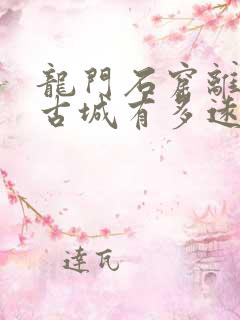 龍門石窟離
古城有多遠
達瓦